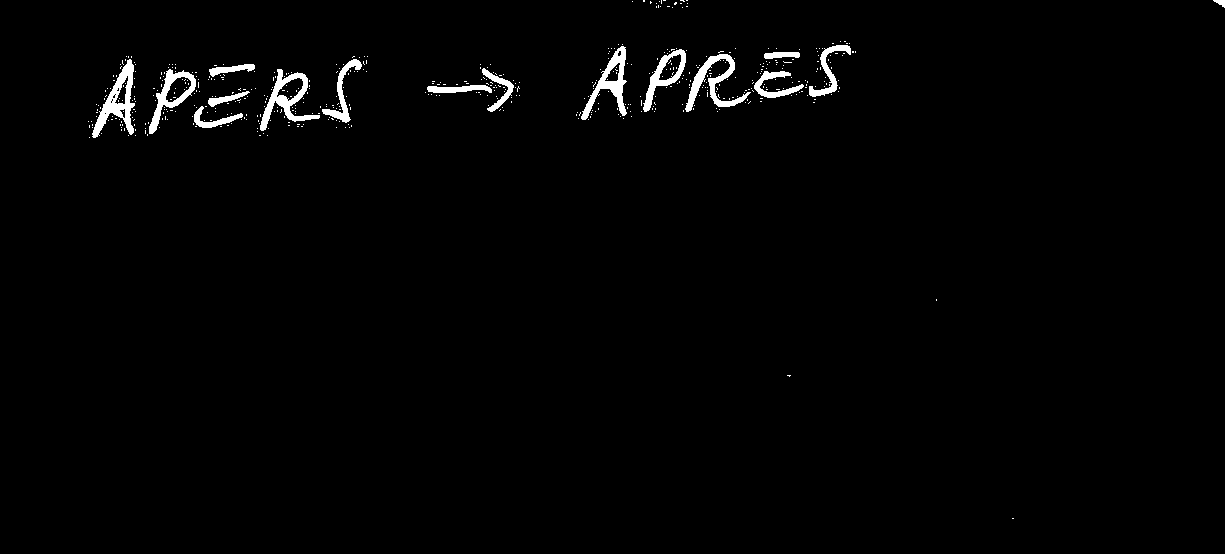 APERS → APRES